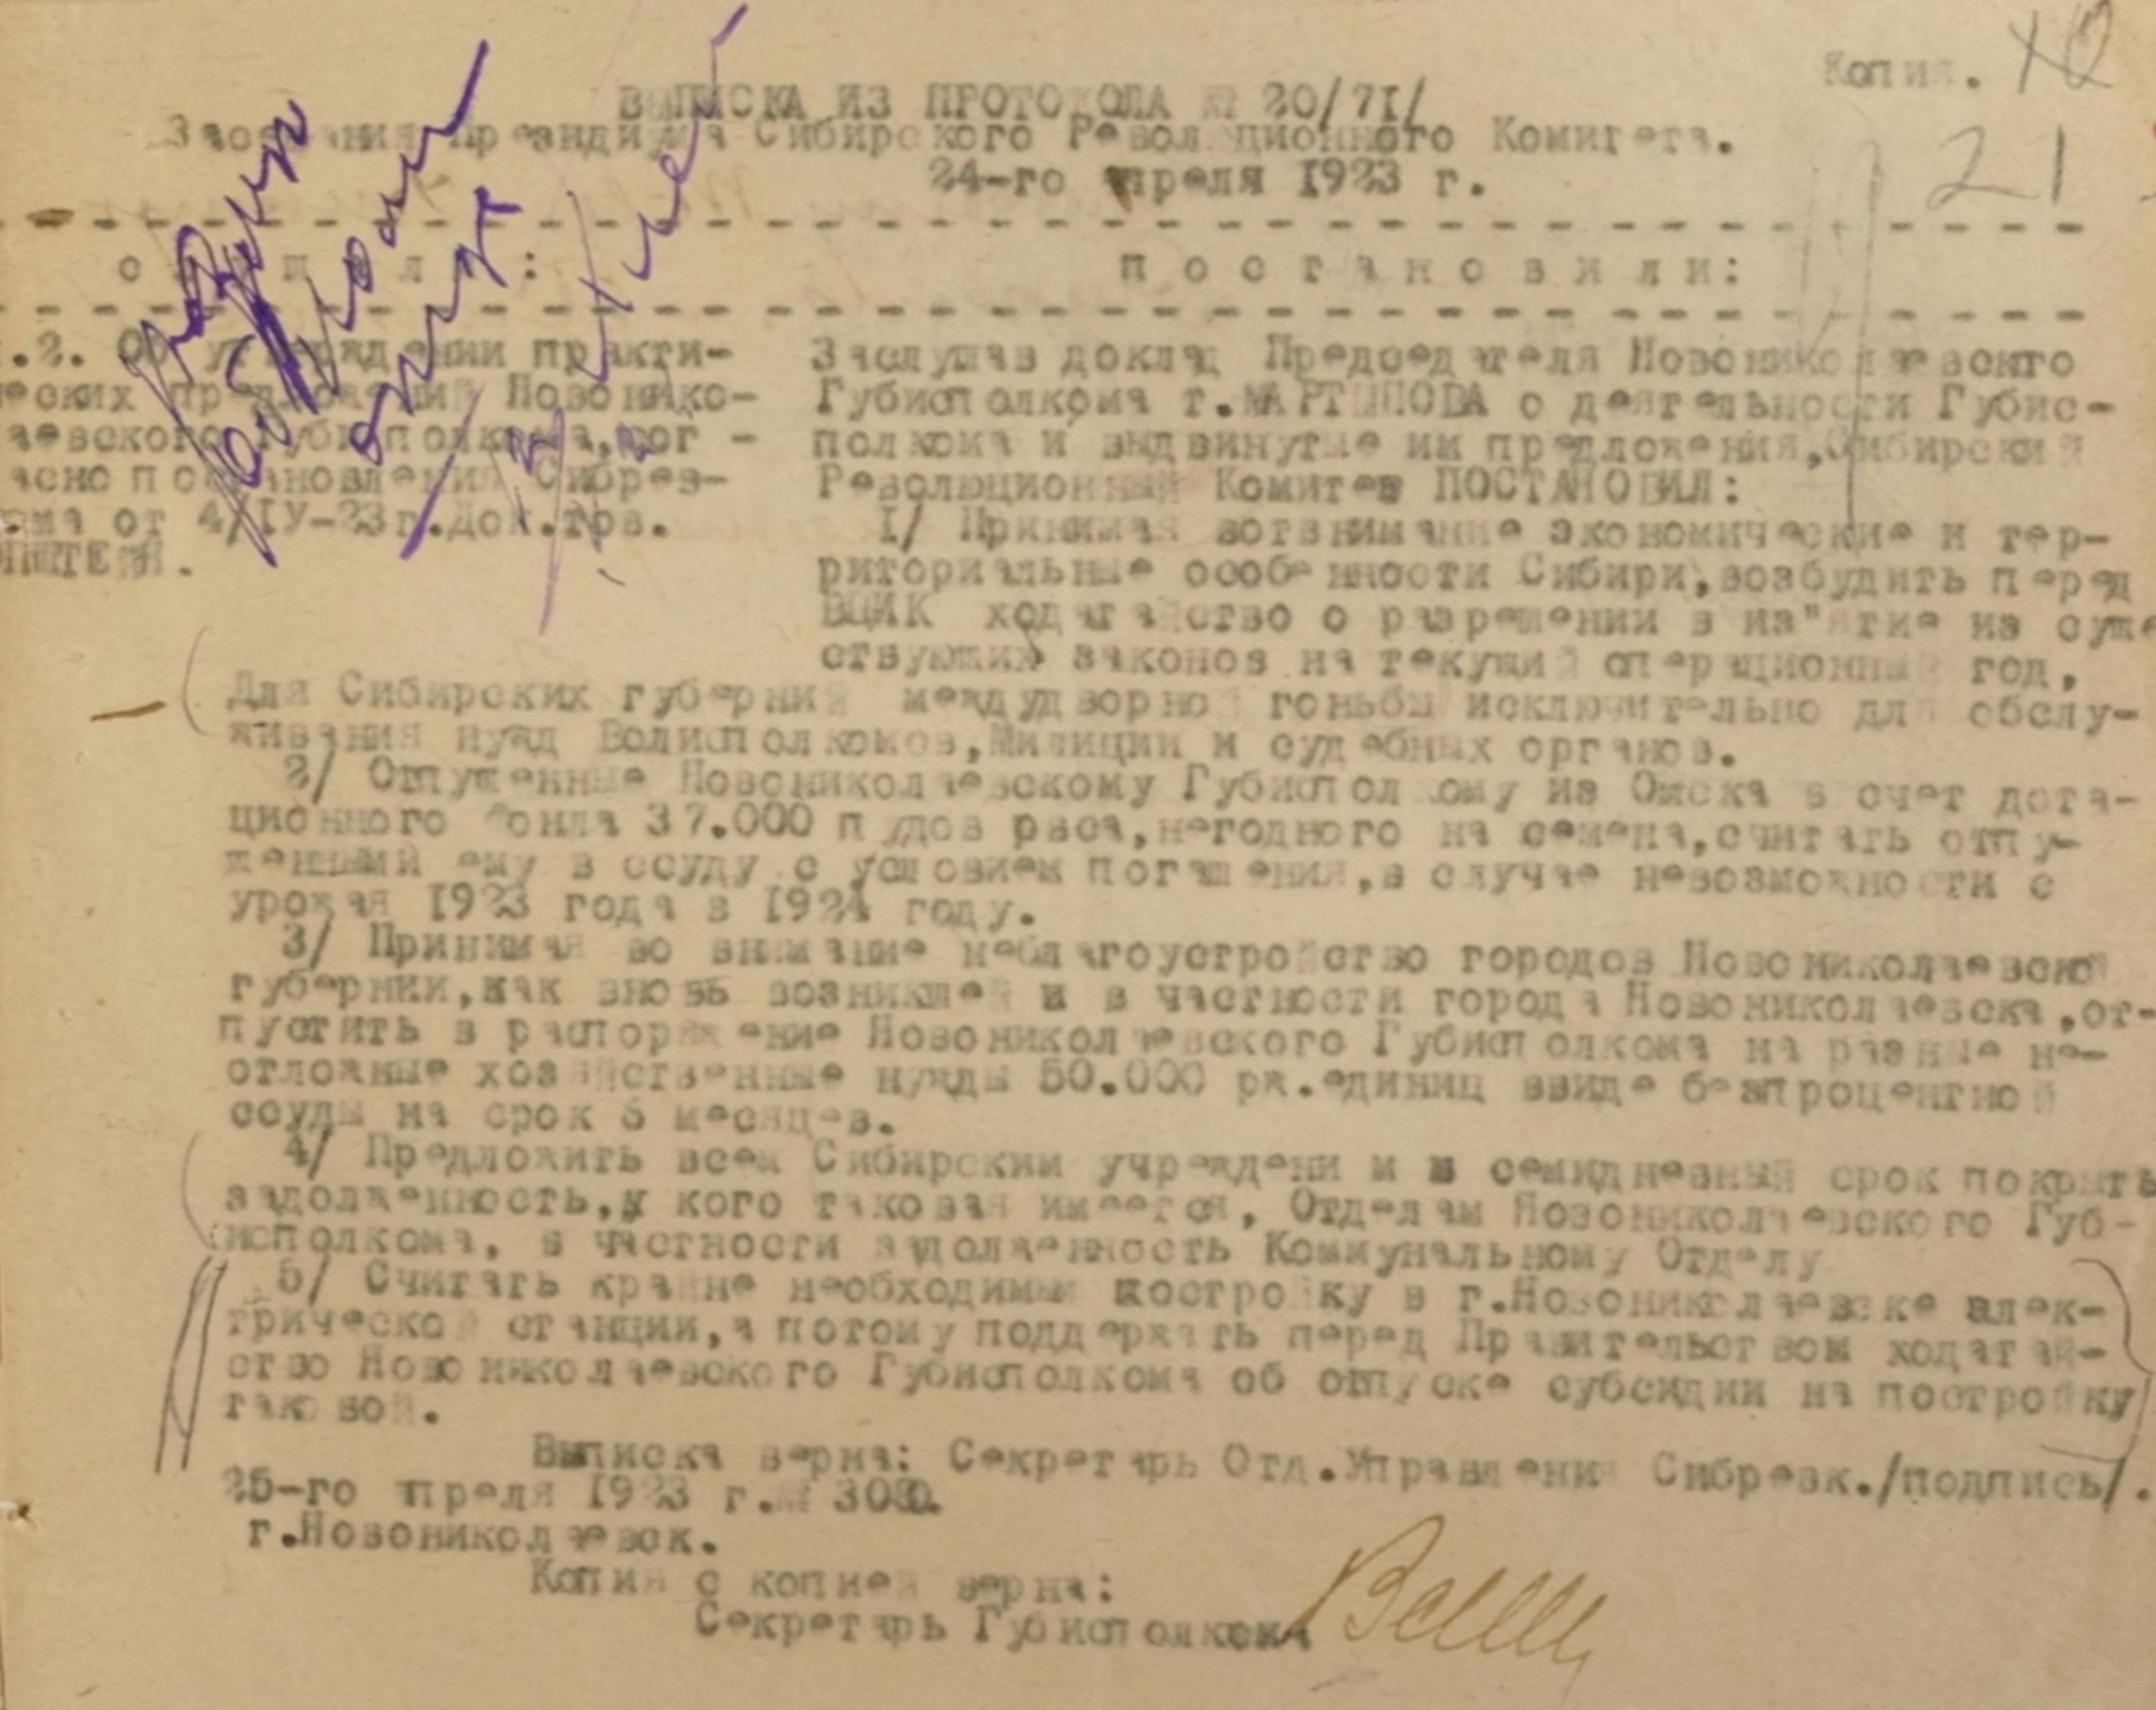 Копия.
21
ВЫПИСКА ИЗ ПРОТОКОЛА № 20/71/
Заседания Президиума Сибирского Революционного Комитета.
24-го апреля 1923 г.
постановили:
.2. Об утверждении практи-
еских предложений Новонико-
аевского Губисполкома, сог -
асно постановления Сибрев-
ома от 4/IУ-23г.Док.тов.
Заслушав доклад Председателя Новониколаевскго
Губисполкома т.МАРТЫНОВА о деятельности Губис-
полкома и выдвинутые им предложения,Сибирский
Революционный Комитет ПОСТАНОВИЛ:
1/ Принимая вовнимание экономические и тер-
риториальные особенности Сибири,возбудить перед
ВЦИК ходатайство о разрешении в из"ятие из суще
ствующих законов на текущий операционный год,
Для Сибирских губерний междудворной гоньбы исключительно для обслу-
живания нужд Волисполкомов,Милиции и судебных органов.
2/ Отпущенные Новониколаевскому Губисполкому из Омска в счет дота-
ционного фонда 37.000 пудов овса,негодного на семена,считать отпу-
щенный ему в ссуду с условием погашения,в случае невозможности с
урожая 1923 года в 1924 году.
3/ Принимая во внимание неблагоустройство городов Новониколаевской
губернии,как вновь возникшей и в частности города Новониколаевска,от-
пустить в распоряжение Новониколаевского Губисполкома на разные не-
отложные хозяйственные нужды 50.000 рж.единиц ввиде безпроцентной
ссуды на срок 6 месяцев.
4/ Предложить всем Сибирским учреждениям в семидневный срок покрыть
задолженность,у кого таковая имеется, Отделам Новониколаевского Губ-
исполкома, в частности задолженность Коммунальному Отделу
5/ Считать крайне необходимым постройку в г.Новониколаевске элек-
трической станции,а потому поддержать перед Правительством ходатай-
ство Новониколаевского Губисполкома об отпуске субсидии на постройку
таковой.
Выписка верна: Секретарь Отд.Управления Сибревк./подпись/.
25-го апреля 1923 г.№
г.Новониколаевск.
Копия с копией верна:
Секретарь Губисполкома